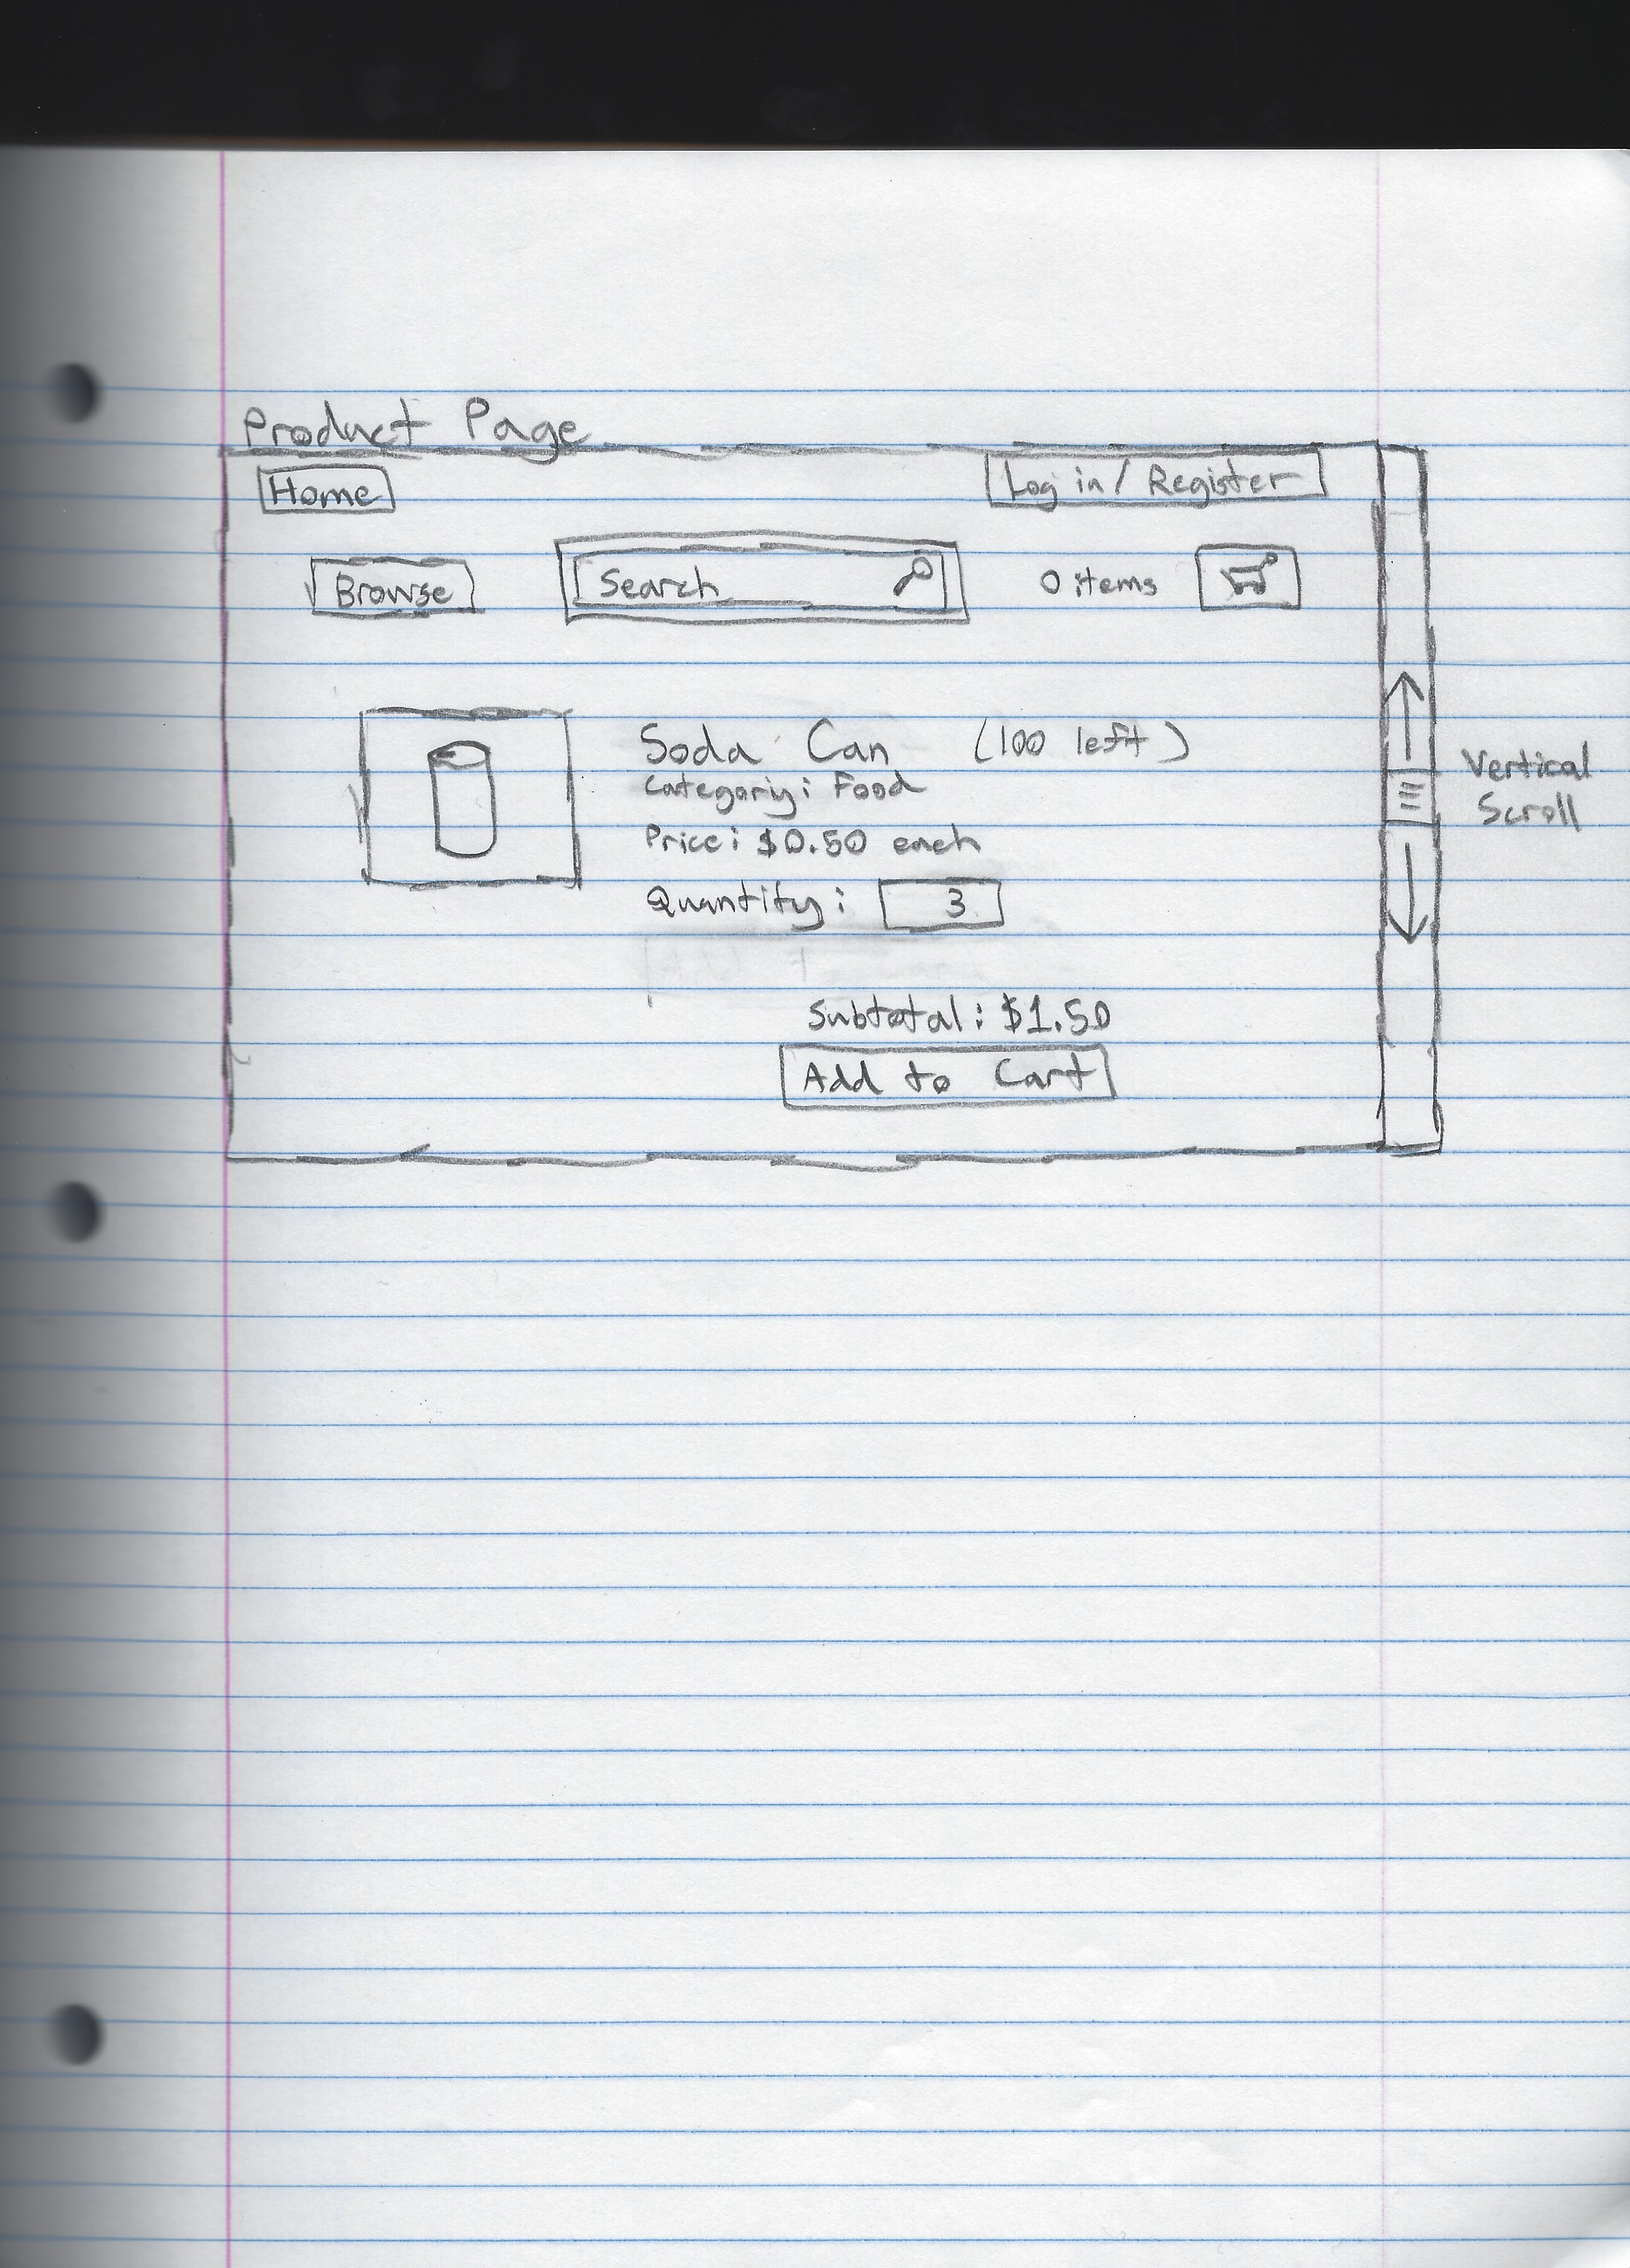 Product Page
Home
Log in / Register
Browse
Search
0 items
Soda Can (100 left)
Category: Food
Price: $0.50 each
Quantity: 3
Subtotal: $1.50
Add to Cart
Vertical
Scroll